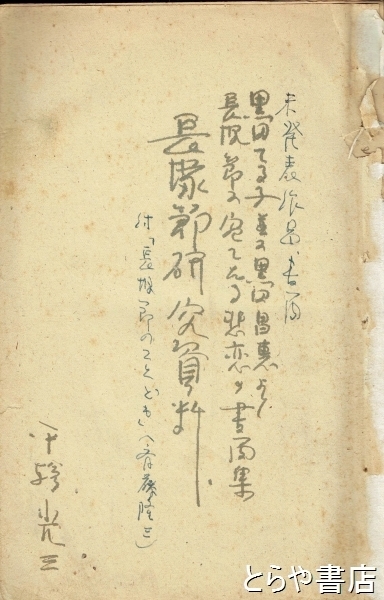 未発表作品書簡
黒田てる子並に黒田昌惠より
長塚節に宛てたる悲恋の書簡集
長塚節研究資料
付「長塚節のことども」(斉藤隆三)
三
とらや書店